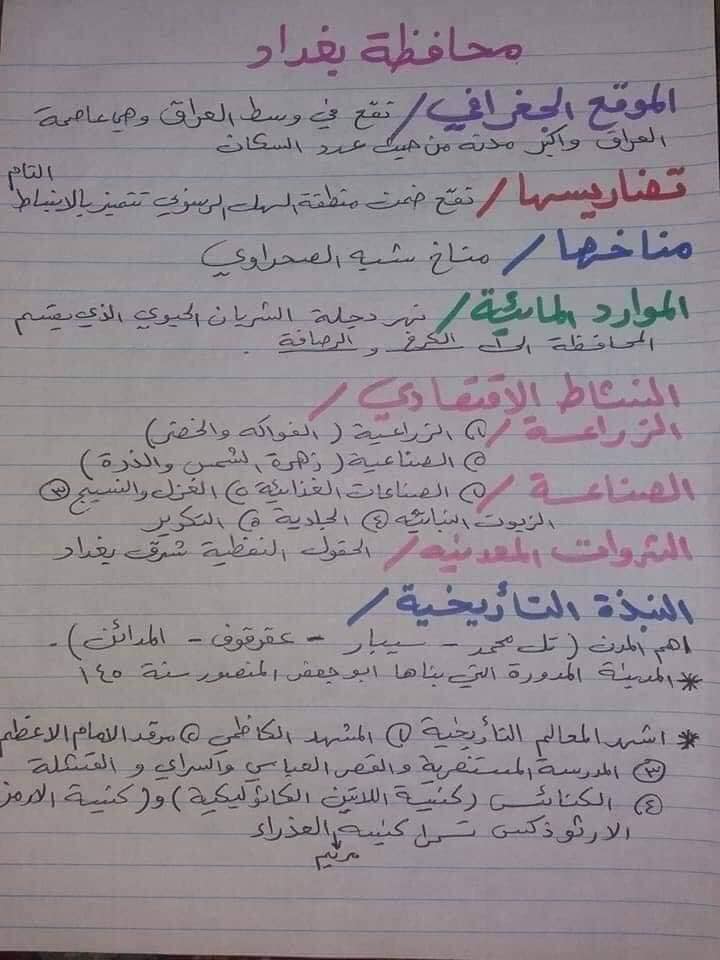 محافظة بغداد
الموقع الجغرافي / تقع في وسط العراق وهي عاصمة
العراق واكبر مدنه من حيث عدد السكان
تضاريسها / تقع ضمن منطقة السهل الرسوبي تتميز بالانبساط التام
مناخها / مناخ شبه الصحراوي
الموارد المائية / نهر دجلة الشريان الحيوي الذي يقسم
المحافظة الى الكرخ و الرصافة .
النشاط الاقتصادي /
الزراعة / ① الزراعية ( الفواكه والخضر)
② الصناعية ( زهرة الشمس والذرة )
الصناعة / ① الصناعات الغذائية ② الغزل والنسيج ③
الزيوت النباتيه ④ الجلدية ⑤ التكرير
الثروات المعدنيه / الحقول النفطية شرق بغداد
النبذة التأريخية /
اهم المدن ( تل محمد - سيبار - عقرقوف - المدائن ) .
* المدينة المدورة التي بناها ابو جعفر المنصور سنة ١٤٥
* اشهر المعالم التأريخية ① المشهد الكاظمي ② مرقد الامام الاعظم
③ المدرسة المستنصرية والقصر العباسي والسراي و القشلة
④ الكنائس (كنيسة اللاتين الكاثوليكية) و( كنيسة الارمن
الارثوذكس كنيسه العذراء
مريم